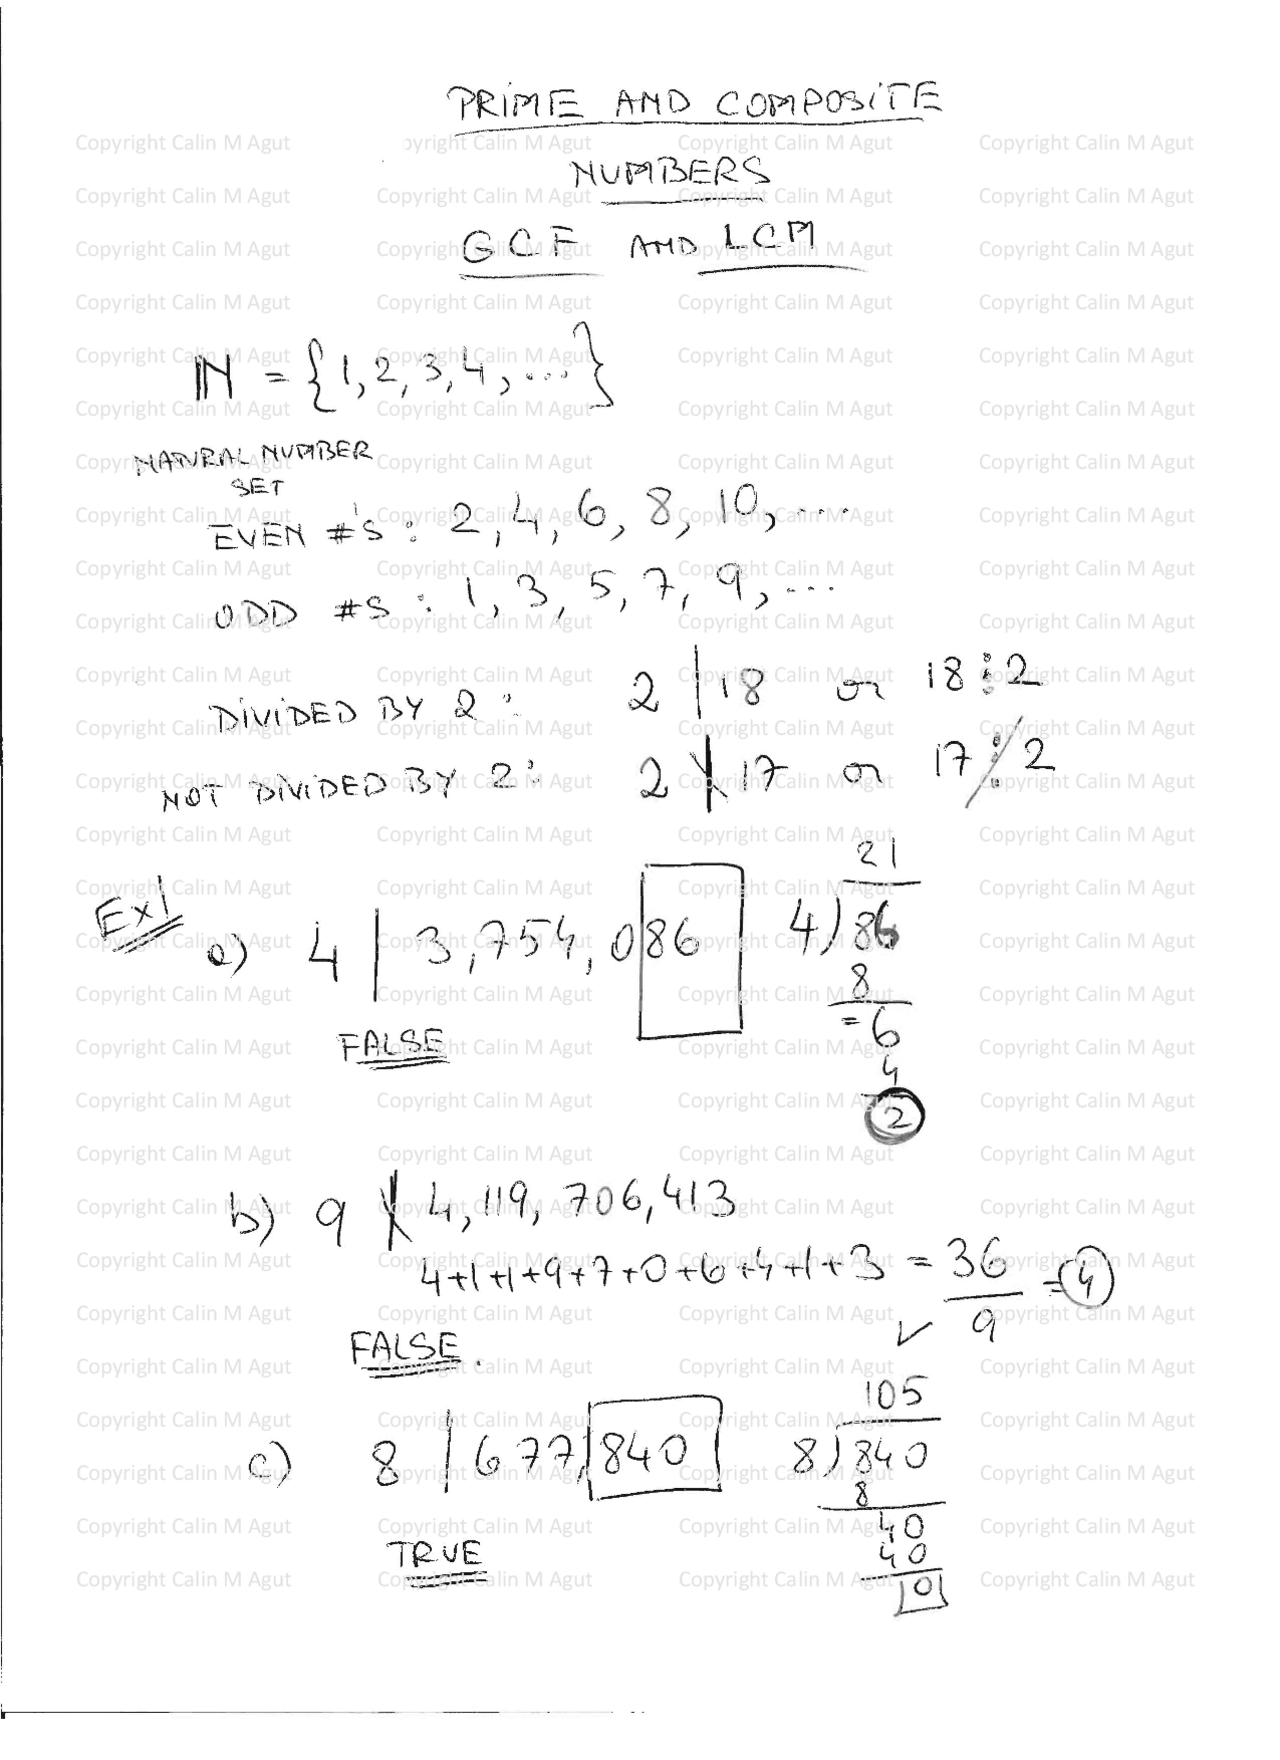 PRIME AND COMPOSITE
NUMBERS
GCF AND LCM
ℕ = {1, 2, 3, 4, ...}
NATURAL NUMBER
SET
EVEN #'S : 2, 4, 6, 8, 10, ....
ODD #S : 1, 3, 5, 7, 9, ...
DIVIDED BY 2 : 2 | 18 or 18 ⋮ 2
NOT DIVIDED BY 2 : 2 ∤ 17 or 17 ⋮̸ 2
Ex1
a) 4 | 3,754,086
FALSE
21
4)86
8
= 6
4
2
b) 9 ∤ 4,119,706,413
4+1+1+9+7+0+6+4+1+3 = 36/9 = 4
FALSE. ✓
c) 8 | 677,840
TRUE
105
8)840
8
40
40
0
Copyright Calin M Agut